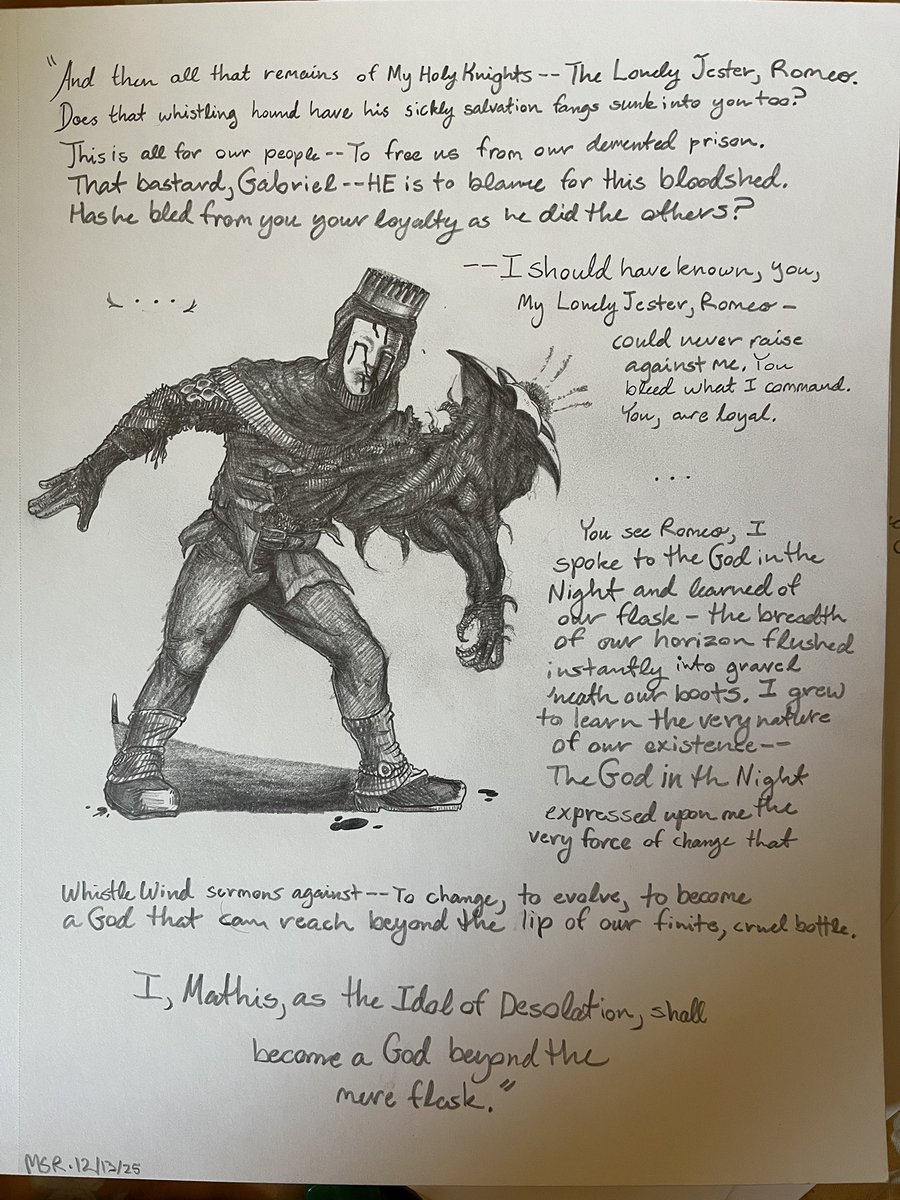 "And then all that remains of My Holy Knights -- The Lonely Jester, Romeo.
Does that whistling hound have his sickly salvation fangs sunk into you too?
This is all for our people -- To free us from our demented prison.
That bastard, Gabriel -- HE is to blame for this bloodshed.
Has he bled from you your loyalty as he did the others?
...
-- I should have known, you,
My Lonely Jester, Romeo -
could never raise
against me. You
bleed what I command.
You, are loyal.
...
You see Romeo, I
spoke to the God in the
Night and learned of
our flask - the breadth
of our horizon flushed
instantly into gravel
'neath our boots. I grew
to learn the very nature
of our existence --
The God in th Night
expressed upon me the
very force of change that
Whistle Wind sermons against -- To change, to evolve, to become
a God that can reach beyond the lip of our finite, cruel bottle.
I, Mathis, as the Idol of Desolation, shall
become a God beyond the
mere flask."
MSR. 12/13/25